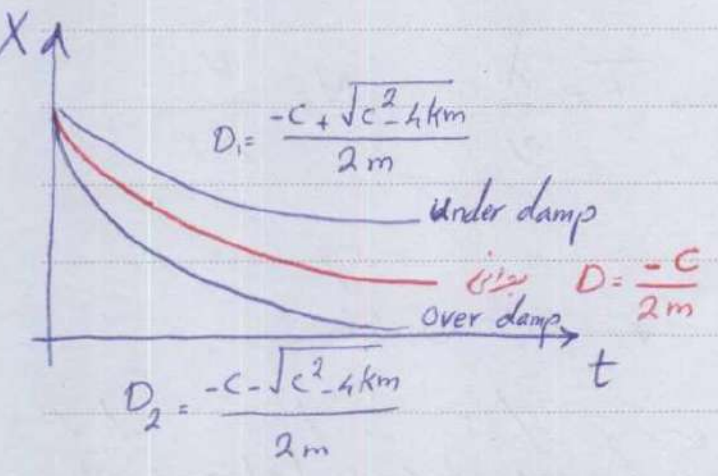 X
D₁ = (-C + √(C² - 4km)) / 2m
Under damp
بحرانی D = -C / 2m
Over damp
t
D₂ = (-C - √(C² - 4km)) / 2m